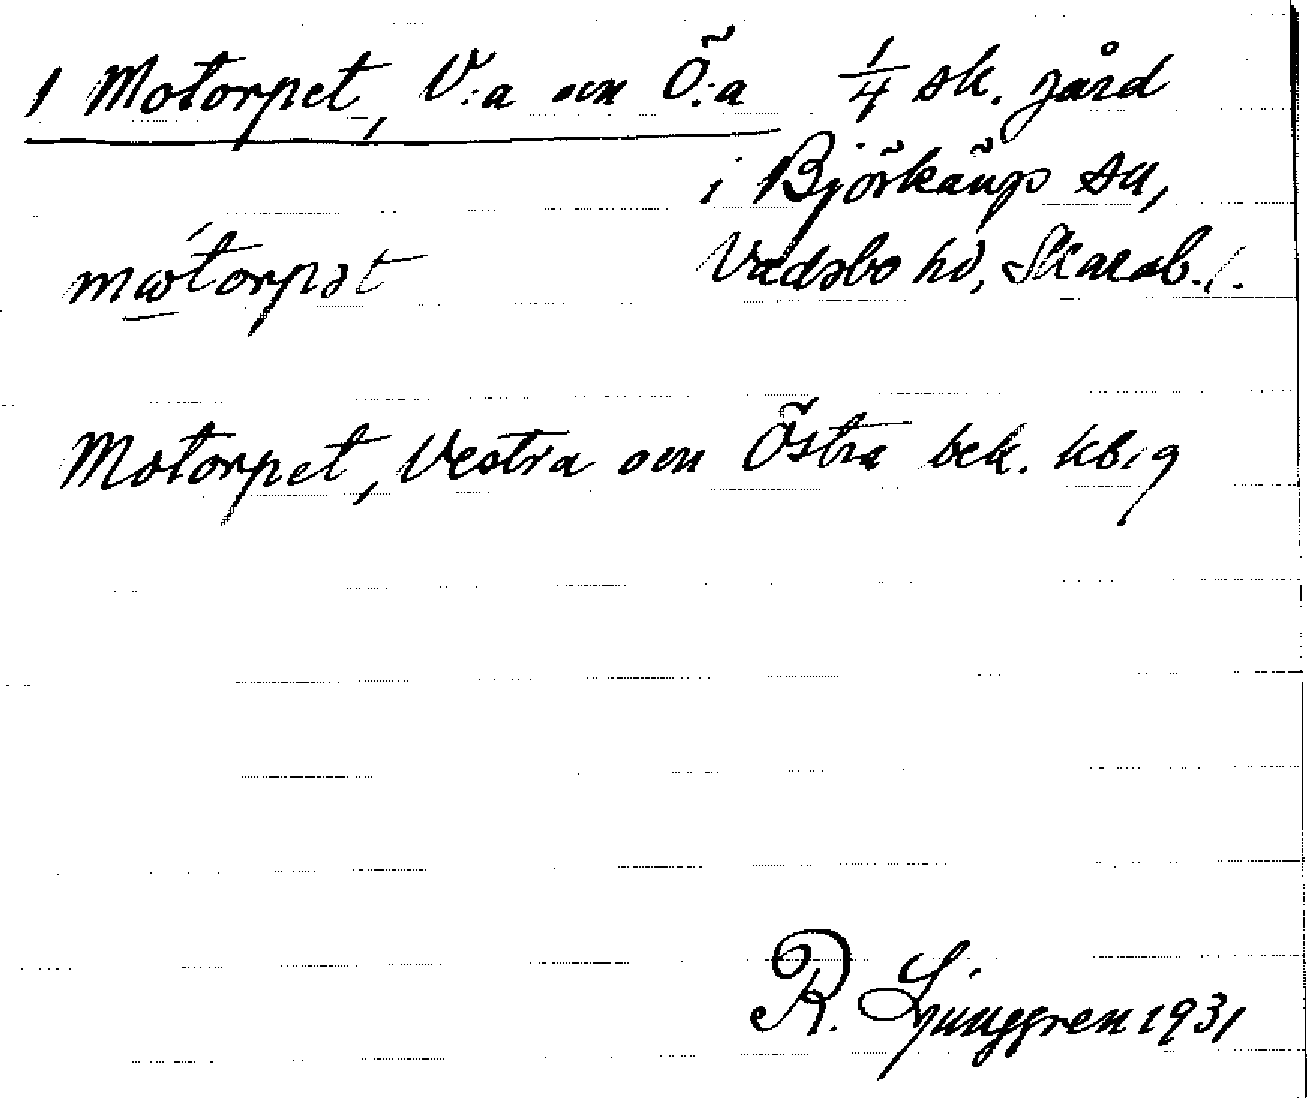 1 Motorpet, V:a och Ö:a 1/4 sk. gård
i Björkängs sn,
Vadsbo hd, Skarab. l.
mωtorpət
Motorpet, Vestra och Östra bek. kbig
R. Ljunggren 1931